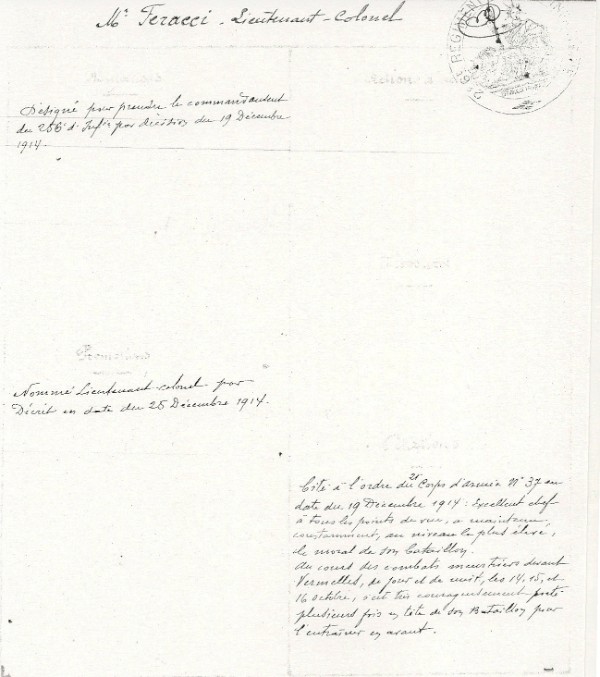 Mr Feracci - Lieutenant-Colonel
Désigné pour prendre le commandement
du 256e d'Infie par décision du 19 Décembre
1914.
Nommé Lieutenant-colonel par
Décret en date du 25 Décembre 1914.
Cité à l'ordre du 21e Corps d'armée N° 37 en
date du 19 Décembre 1914 : Excellent chef
à tous les points de vue, a maintenu,
constamment, au niveau le plus élevé,
le moral de son bataillon.
Au cours des combats meurtriers devant
Vermelles, de jour et de nuit, les 14, 15, et
16 octobre, s'est très courageusement porté
plusieurs fois en tête de son Bataillon pour
l'entraîner en avant.